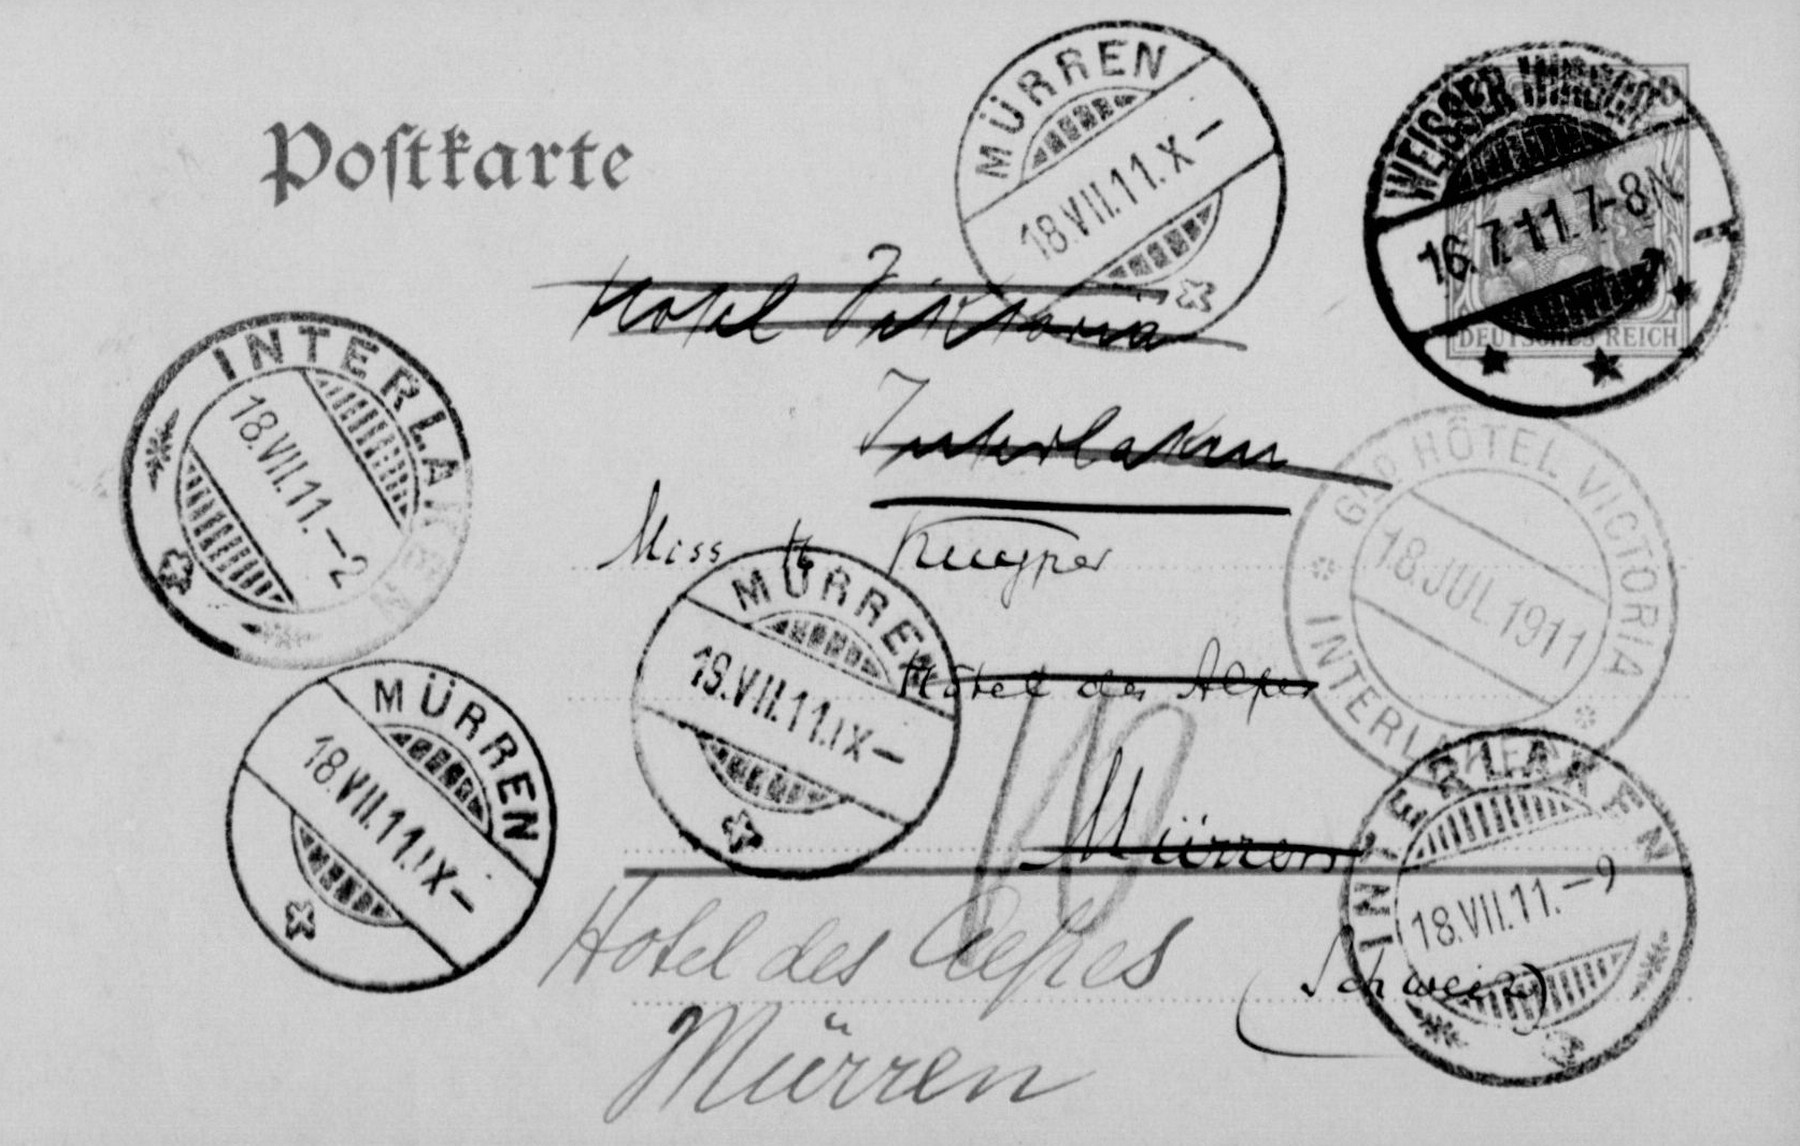 Postkarte
MÜRREN
18.VII.11.X–
WEISSER HIRSCH
16.7.11.7-8N
DEUTSCHES REICH
Hotel Viktoria
INTERLAKEN
18.VII.11.–2
Interlaken
GRD HÔTEL VICTORIA
18.JUL.1911
INTERLAKEN
Miss H Kuyper
MÜRREN
19.VII.11.IX–
Hôtel des Alpes
MÜRREN
18.VII.11.IX–
10
Mürren
INTERLAKEN
18.VII.11.–9
Hotel des Alpes
(Schweiz)
Mürren